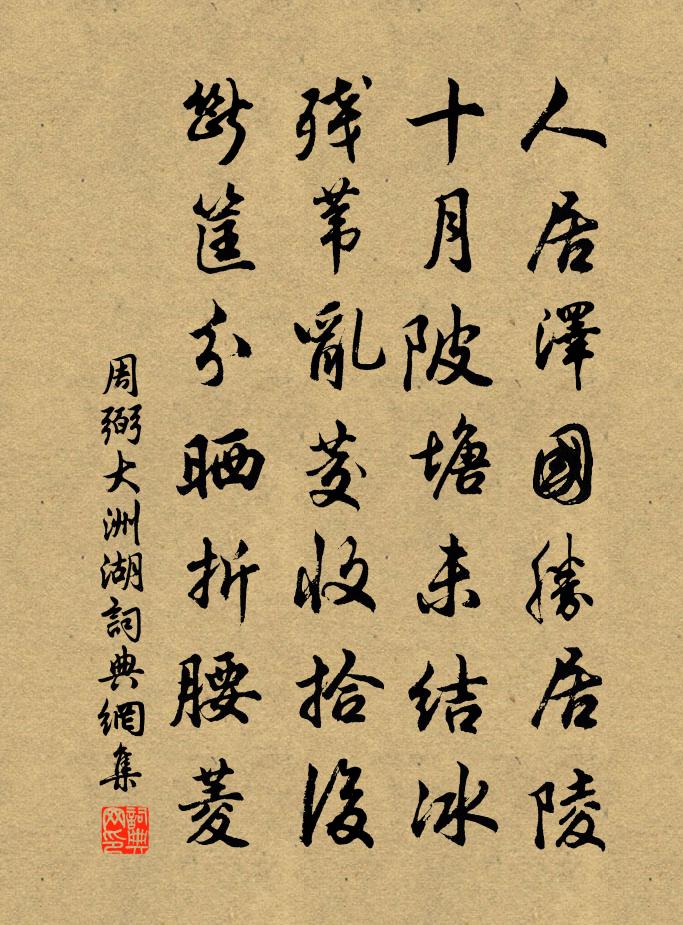 人居澤國勝居陵
十月陂塘未結冰
殘葦亂茭收拾後
斷筐分晒折腰菱
周弼大洲湖詞典網集
詞典网印